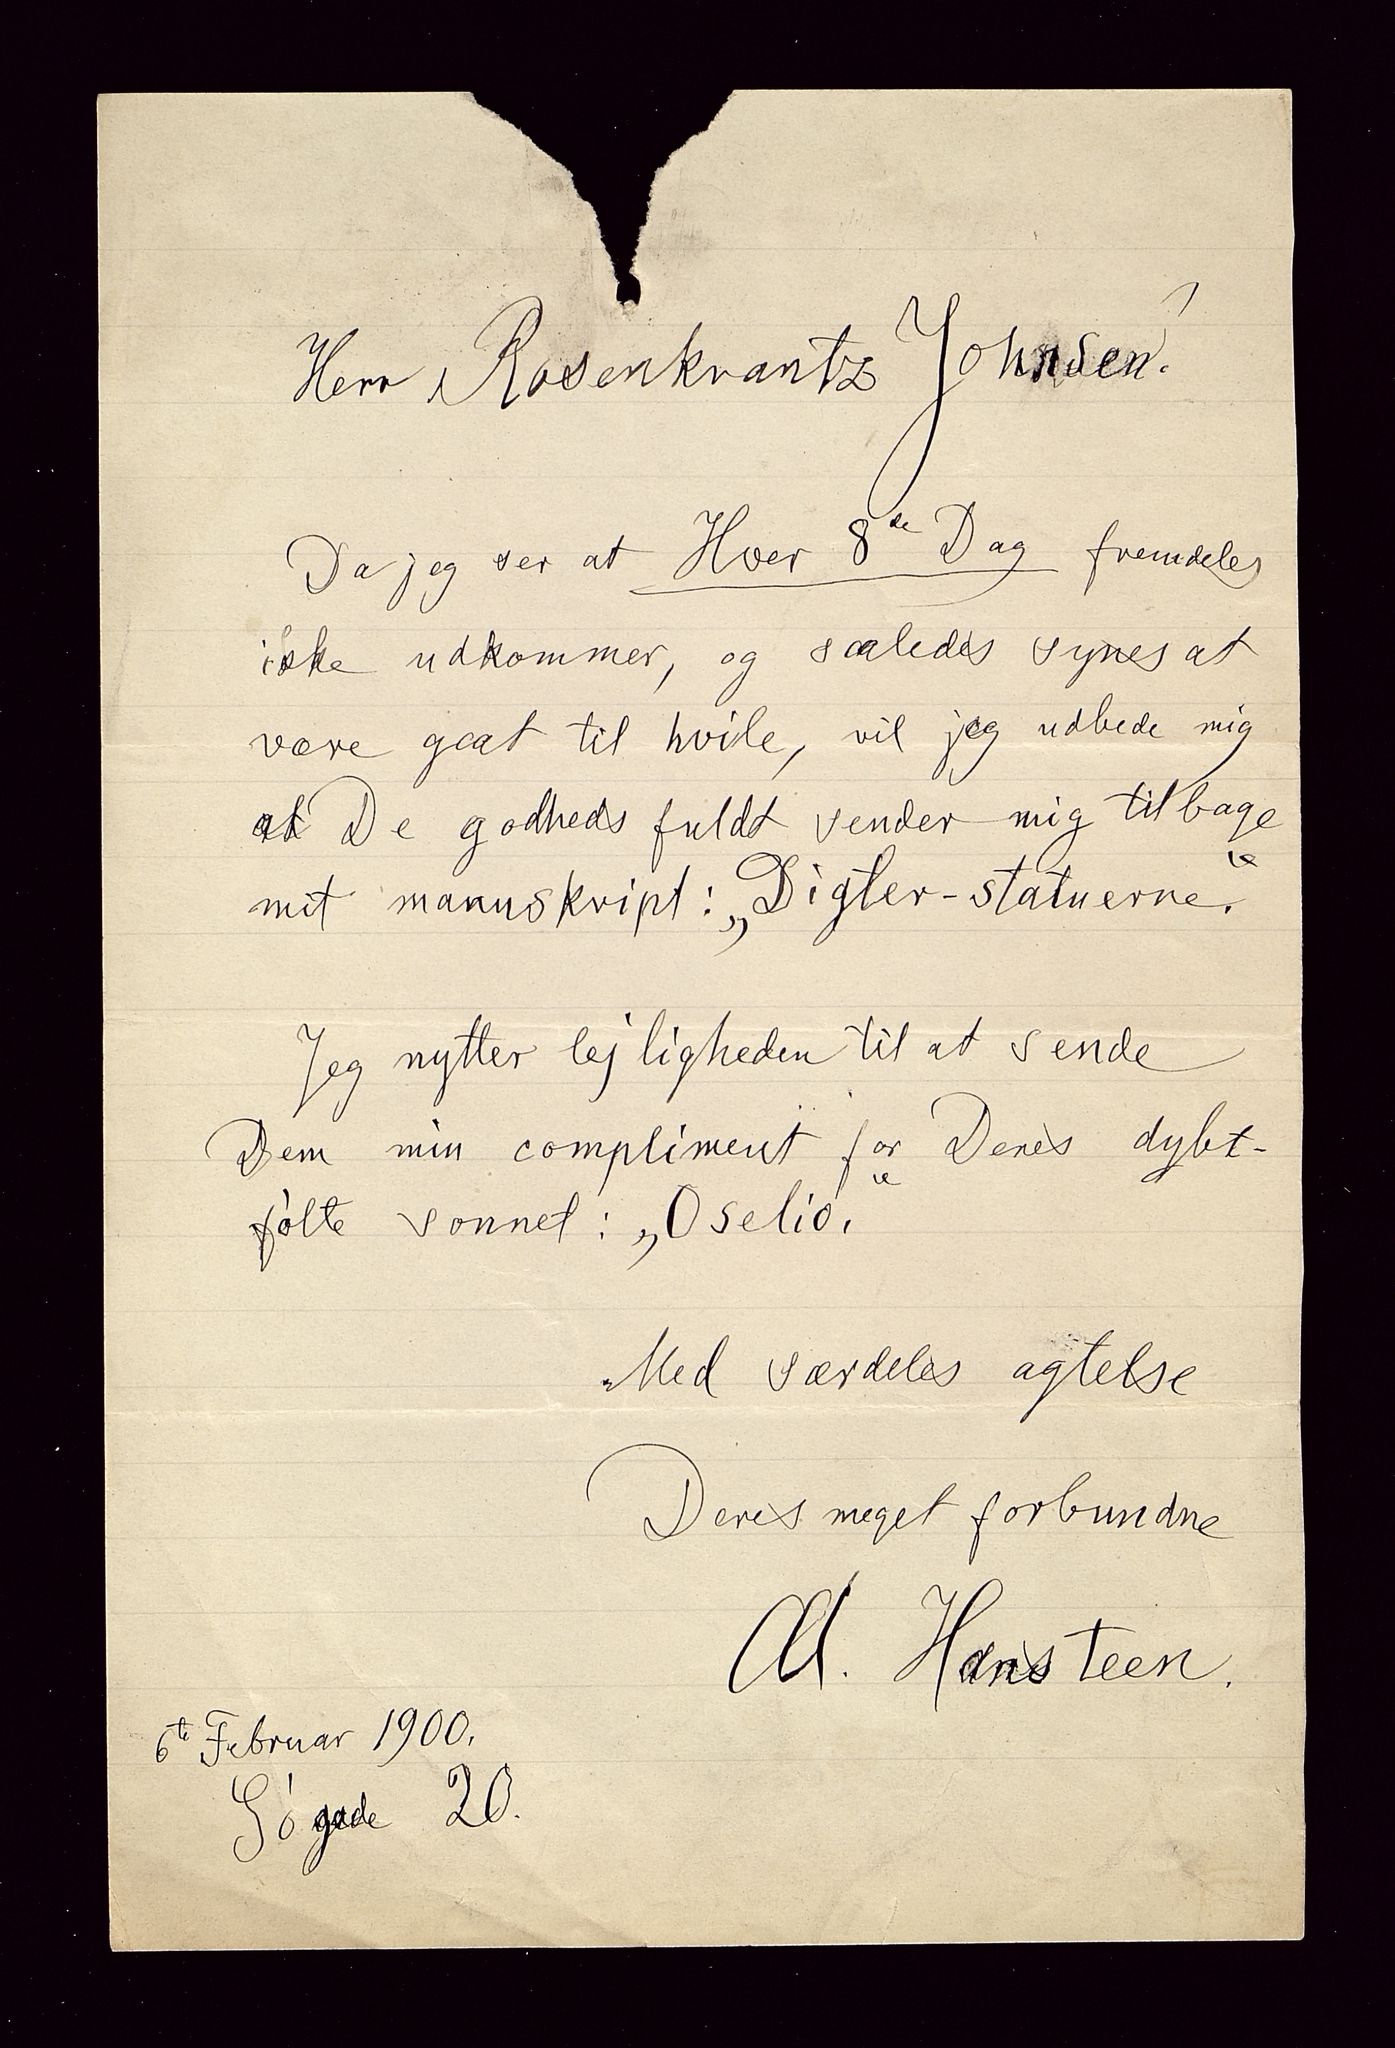 Herr Rosenkrantz Johnsen!
Da jeg ser at Hver 8de Dag fremdeles
ikke udkommer, og saaledes synes at
være gaat til hvile, vil jeg udbede mig
at De godhedsfuldt sender mig tilbage
mit manuskript: „Digter-statuerne.“
Jeg nytter lejligheden til at sende
Dem min compliment for Deres dybt-
følte sonnet: „Oselio.“
Med særdeles agtelse
Deres meget forbundne
Aa. Hansteen.
6te Februar 1900.
Søgade 20.